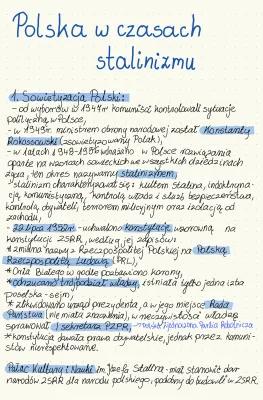 Polska w czasach
stalinizmu
1. Sowietyzacja Polski:
- od wyborów w 1947r komuniści kontrolowali sytuację
polityczną w Polsce,
- w 1949r. ministrem obrony narodowej został Konstanty
Rokossowski (zsowietyzowany Polak),
- w latach 1948-1956 wdrażano w Polsce rozwiązania
oparte na wzorcach sowieckich we wszystkich dziedzinach
życia, ten okres nazywamy stalinizmem,
- stalinizm charakteryzował się: kultem Stalina, indoktryna-
cją komunistyczną, kontrolą władz i służb bezpieczeństwa,
kontrolą obywateli, terrorem milicyjnym oraz izolacją od
zachodu,
- 22 lipca 1952r. - uchwalono konstytucję wzorowaną na
konstytucji ZSRR, według jej zapisów:
* zmieniono nazwę z Rzeczpospolitej Polskiej na Polską
Rzeczpospolitą Ludową (PRL),
* Orła Białego w godle pozbawiono korony,
* odrzucono trójpodział władzy, istniała tylko jedna izba
poselska - sejm,
* zlikwidowano urząd prezydenta, a w jego miejsce Rada
Państwa (nie miała znaczenia), w rzeczywistości władzę
sprawował I sekretarz PZPR, → Polska Zjednoczona Partia Robotnicza
* konstytucja dawała prawa obywatelskie, jednak przez komuni-
stów nierespektowane.
Pałac Kultury i Nauki im. Józefa Stalina - miał stanowić dar
narodów ZSRR dla narodu polskiego, podobny do budowli w ZSRR.